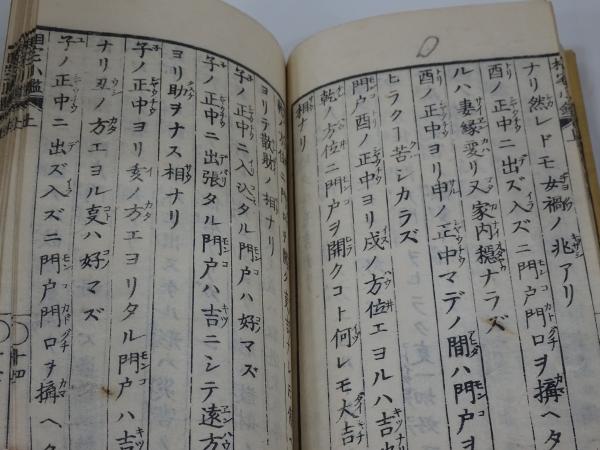 ナリ然レドモ女禍ノ兆アリ
酉ノ正中ニ出ズ入ズニ門戸門口ヲ搆ヘタ
ルハ妻縁変リ又家内穏ナラズ
酉ノ正中ヨリ申ノ正中マデノ間ハ門戸ヲ
ヒラクー苦シカラズ
門戸酉ノ正中ヨリ戌ノ方位エヨルハ吉ナリ
乾ノ方位ニ門戸ヲ開クコト何レモ大吉
相ナリ
ヨリテ散財ノ相ナリ
子ノ正中ニ入込タル門戸ハ好マズ
子ノ正中ニ出張タル門戸ハ吉ニシテ遠方
ヨリ助ヲナス相ナリ
子ノ正中ヨリ亥ノ方エヨリタル門戸ハ吉
ナリ丑ノ方エヨル亥ハ好マズ
子ノ正中ニ出ズ入ズニ門戸門口ヲ搆ヘタ